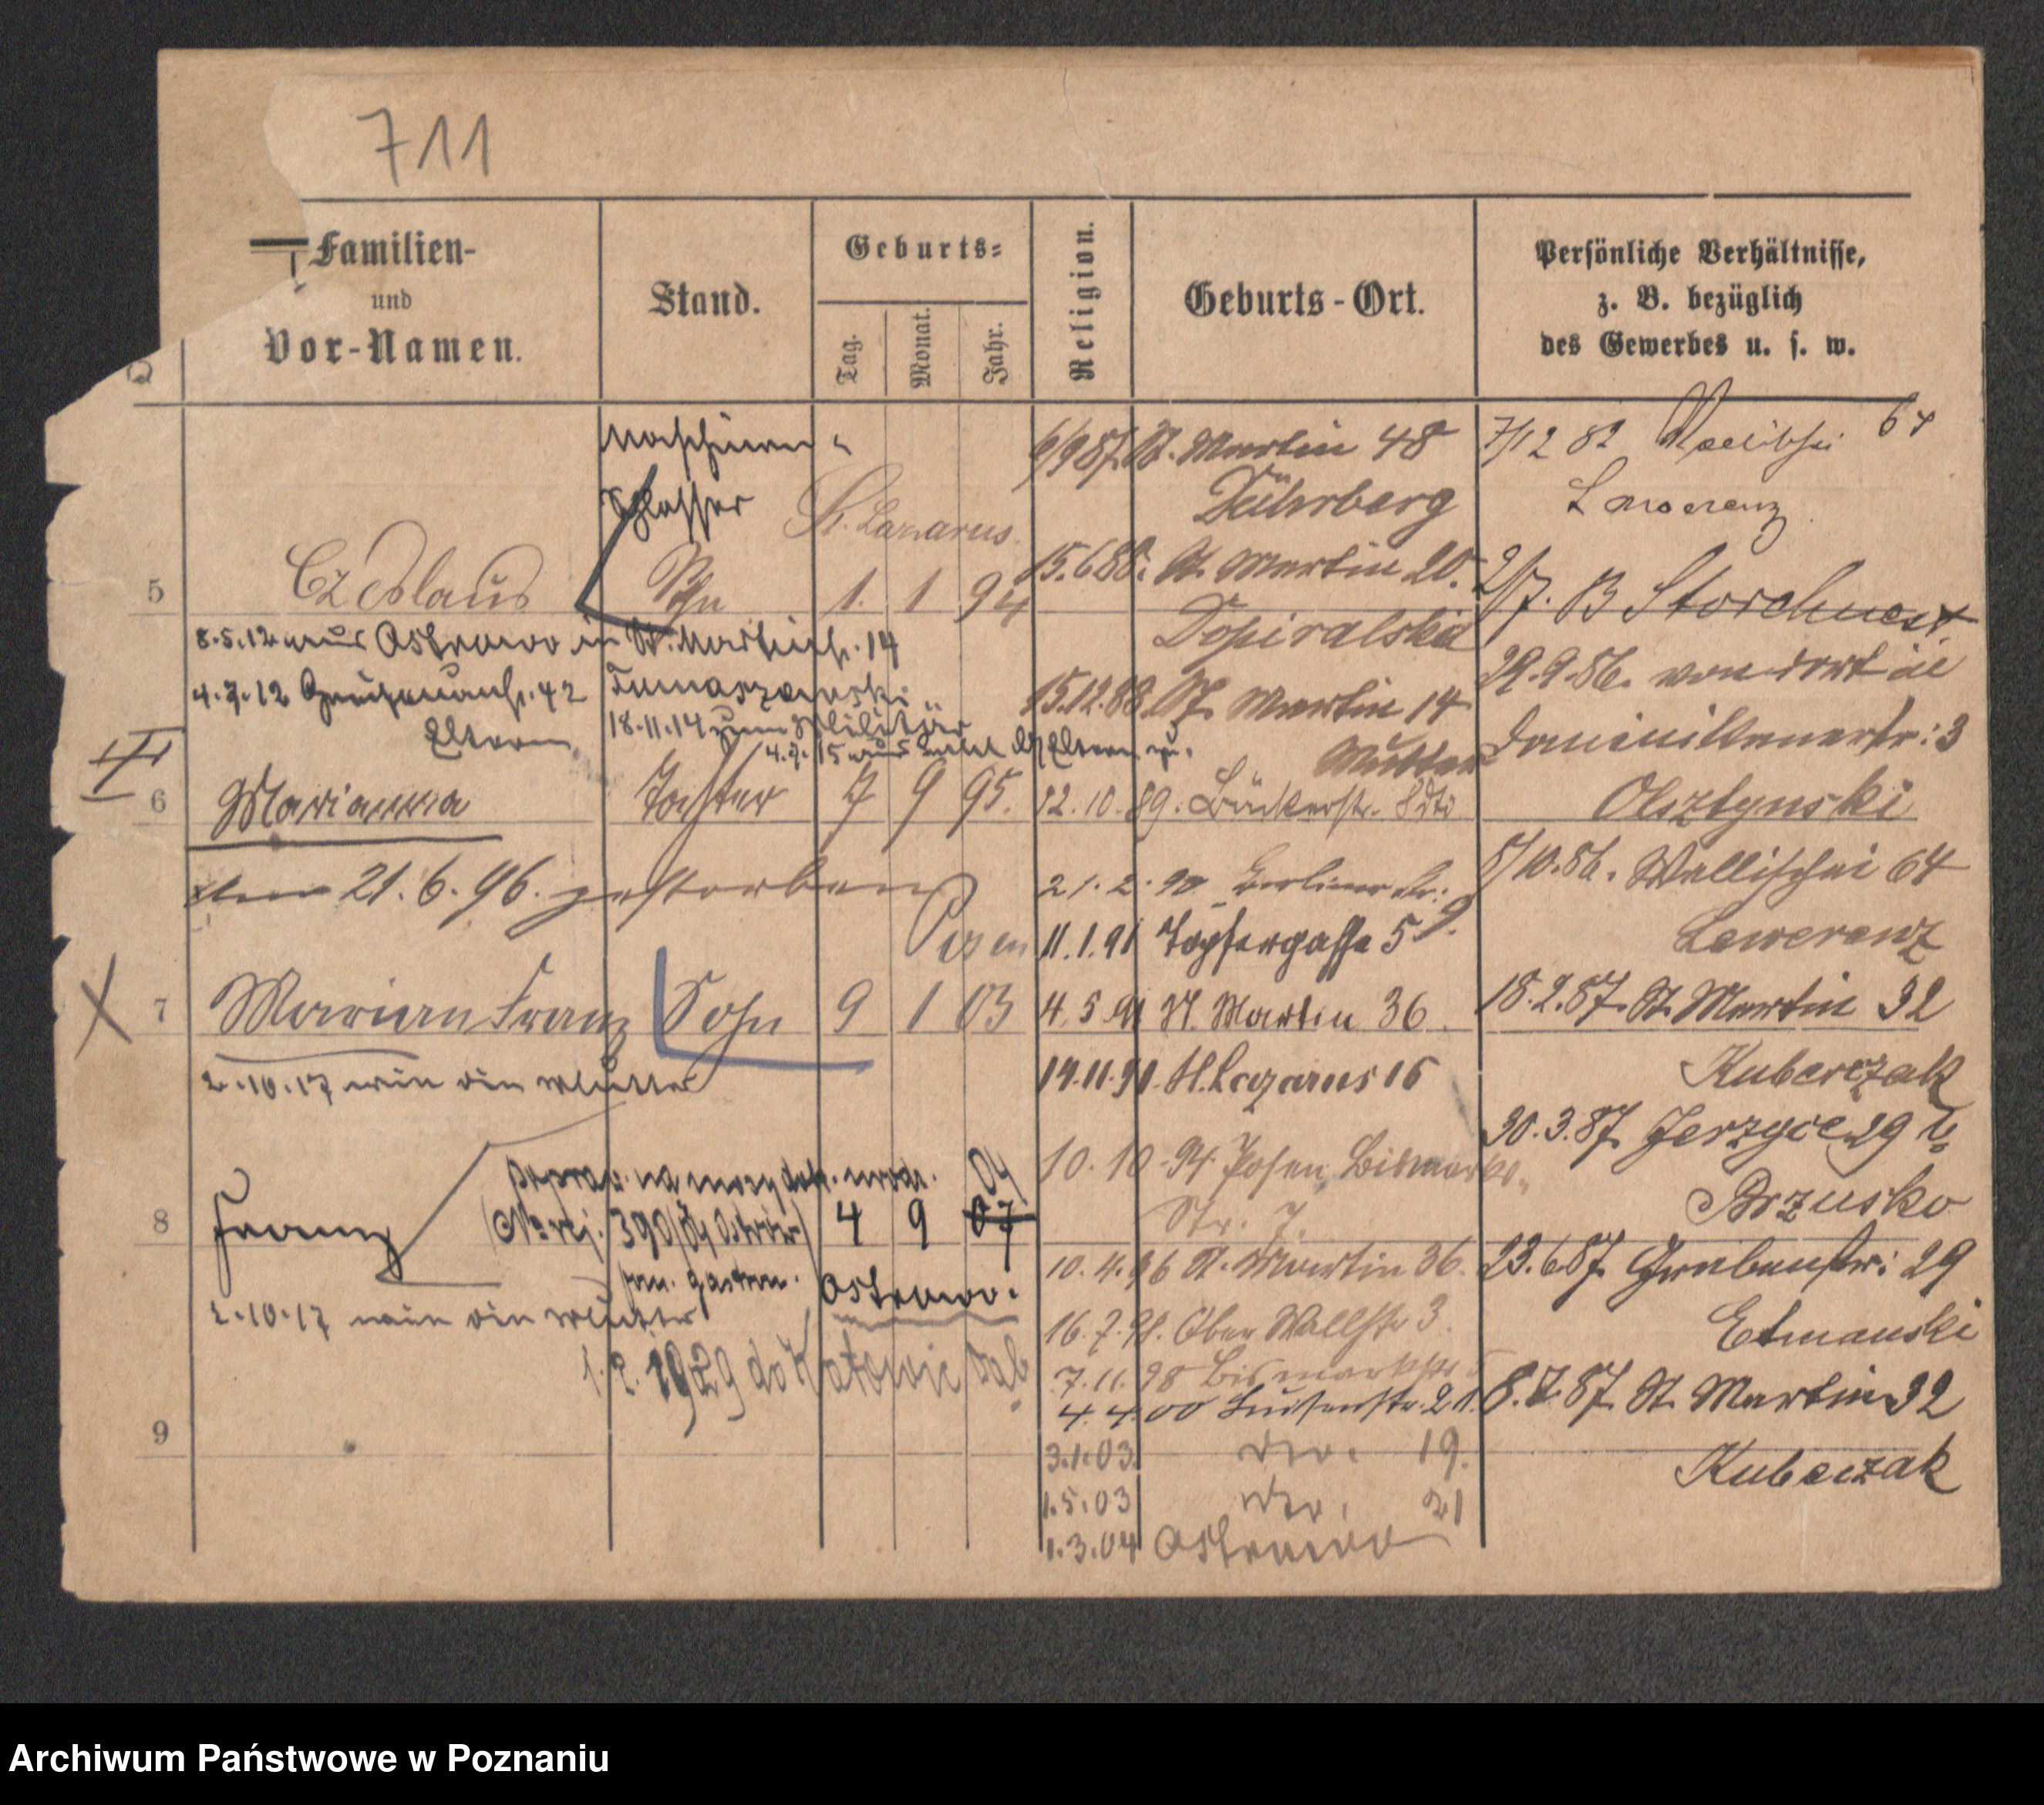 711
Familien-
und
Vor-Namen.
Stand.
Geburts-
Tag.
Monat.
Jahr.
Religion.
Geburts-Ort.
Persönliche Verhältnisse,
z. B. bezüglich
des Gewerbes u. s. w.
Maschinen
Schlosser
St. Lazarus.
5 Czeslaus Sohn 1. 1 94
8.5.12 aus Ostrowo in St. Martinstr. 14
4.7.12 42 Tomaszewski
Eltern 18.11.14 zum Militär
4.7.15
6 Marianna Tochter 7 9 95.
21.6.96. gestorben
Posen
7 Marian Franz Sohn 9 1 03
2.10.17 wie die Mutter
popraw. na mocy dok. urodz. 04
8 Franz (No rej. 390/04 Ostrów) 4 9 07
Ostrowo.
2.10.17 wie die Mutter
1929 do Katowic
9
6/9 87. St. Martin 48
Dührberg
15.6.88. St. Martin 20.
Dopiralska
15.12.88 St. Martin 14
Mutter
12.10.89. Bäckerstr.
21.2.90 Berliner Str. 9.
11.1.91 Töpfergasse 5
4.5.91 St. Martin 36
14.11.91. St. Lazarus 16
10.10.94. Posen, Bismarck-
Str. 7.
10.4.96 St. Martin 36.
16.7.98. Ober Wallstr 3.
7.11.98 Bismarckstr
4.4.00 Luisenstr. 21.
3.1.03. dto. 19.
1.5.03 dto. 21
1.3.04 Ostrowo
7/12 82 Wallischei 64
Lawerenz
2/7. B Storchnest
29.9.86. von dort in
Dominikanerstr: 3
Olsztynski
8/10.86. Wallischei 64
Lewerenz
18.2.87. St. Martin 32
Kuberczak
30.3.87. Jerzyce 29 b
Brzusko
23.6.87. Grabenstr: 29
Etmanski
8.7.87. St. Martin 32
Kubeczak
Archiwum Państwowe w Poznaniu